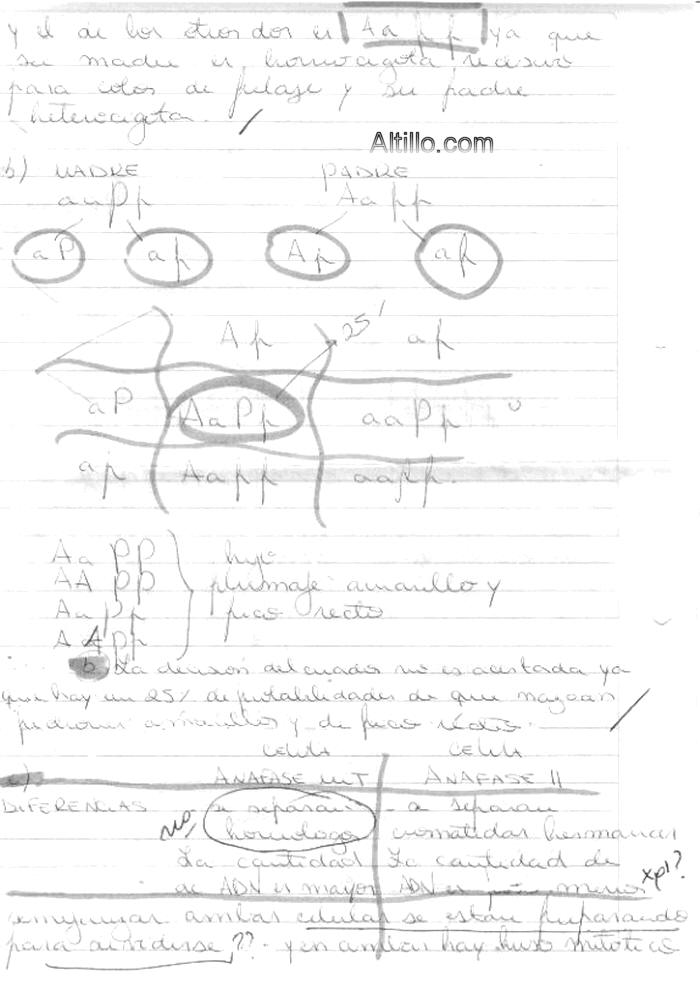 y el de los otros dos es Aapp ya que
su madre es homocigota recesivo
para color de pelaje y su padre
heterocigota.
Altillo.com
b) MADRE PADRE
aaPp Aapp
aP ap Ap ap
25%
Ap ap
aP AaPp aaPp
ap Aapp aapp.
Aa PP
AA PP
Aa Pp
AA Pp
hijo
plumaje amarillo y
pico recto
b. La decisión del cuidador no es acertada ya
que hay un 25% de probabilidades de que nazcan
amarillos y de pico recto.
CELULA CELULA
c) ANAFASE MIT ANAFASE II
DIFERENCIAS se separan - se separan
no homologos cromatidas hermanas
La cantidad La cantidad de
de ADN es mayor ADN es menor xq'?
ambas celulas se estan preparando
para dividirse ??. y en ambas hay huso mitotico